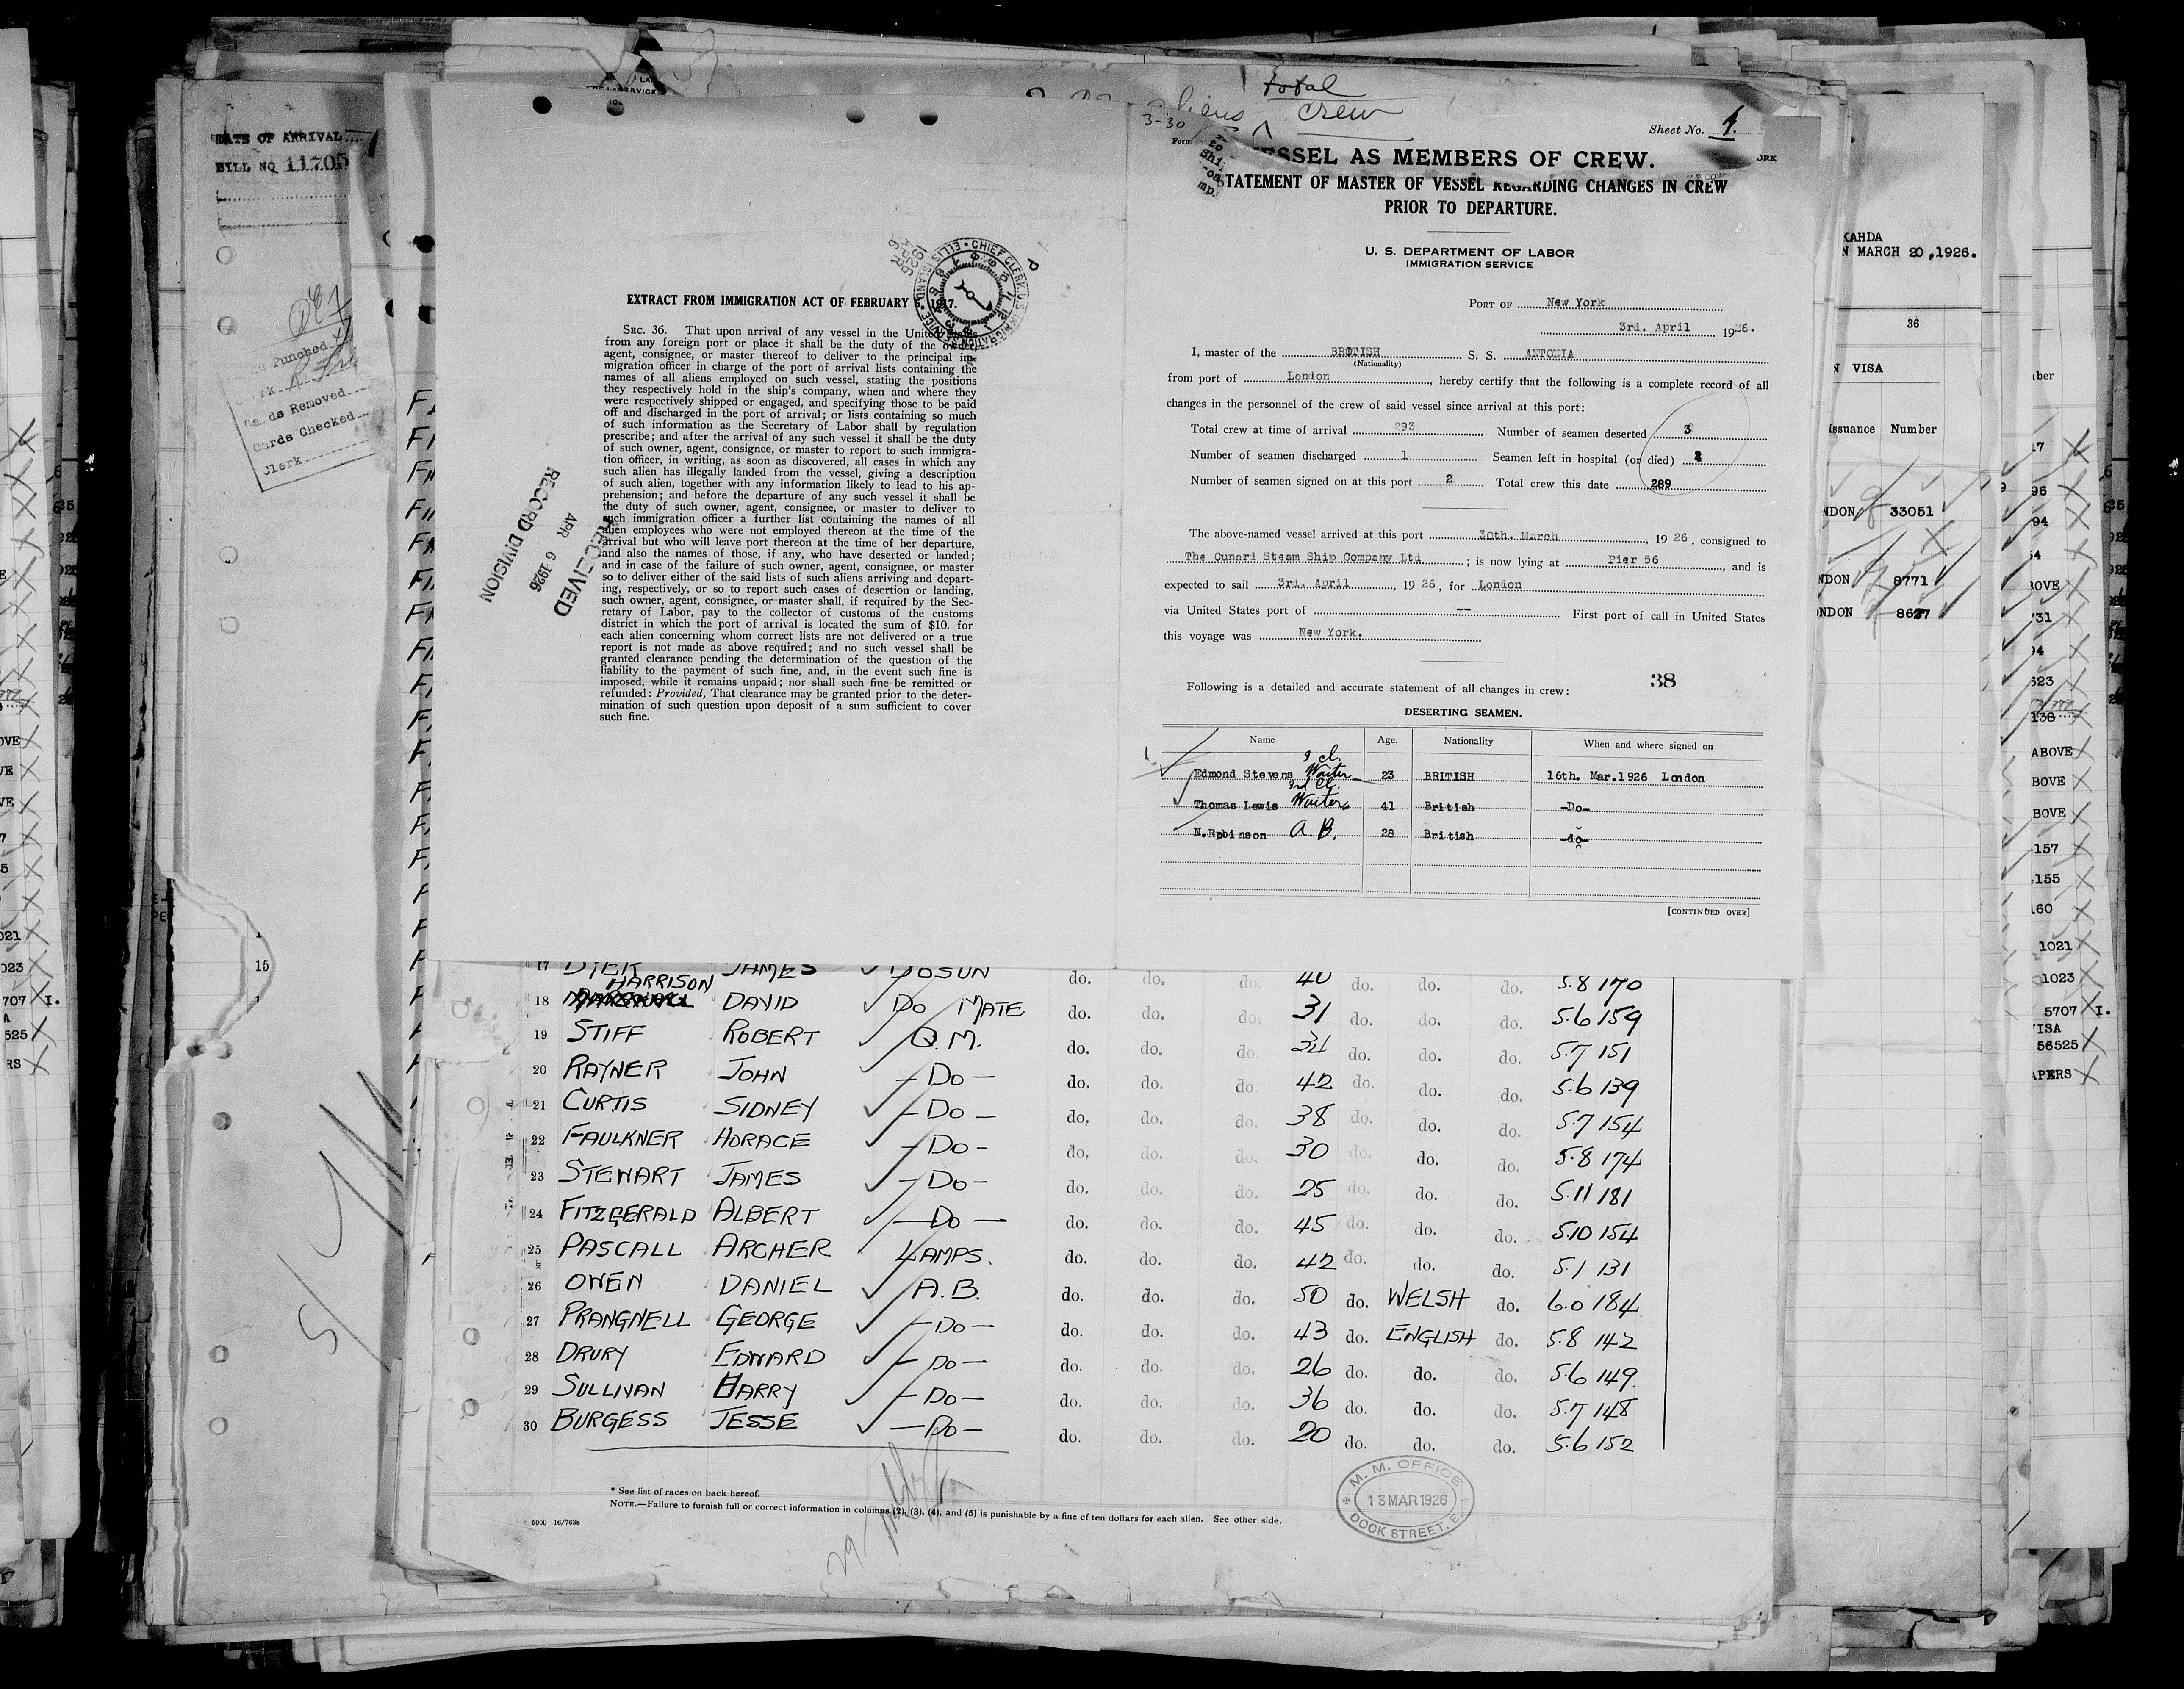 total
crew
3-30
Sheet No. 1.
VESSEL AS MEMBERS OF CREW.
STATEMENT OF MASTER OF VESSEL REGARDING CHANGES IN CREW
PRIOR TO DEPARTURE.
U. S. DEPARTMENT OF LABOR
IMMIGRATION SERVICE
PORT OF New York
3rd. April 1926.
I, master of the BRITISH S. S. ANTONIA
(Nationality)
from port of London, hereby certify that the following is a complete record of all
changes in the personnel of the crew of said vessel since arrival at this port:
Total crew at time of arrival 293 Number of seamen deserted 3
Number of seamen discharged 1 Seamen left in hospital (or died) 2
Number of seamen signed on at this port 2 Total crew this date 289
The above-named vessel arrived at this port 30th. March, 1926, consigned to
The Cunard Steam Ship Company Ltd; is now lying at Pier 56, and is
expected to sail 3rd. April, 1926, for London
via United States port of -- First port of call in United States
this voyage was New York.
38
Following is a detailed and accurate statement of all changes in crew:
DESERTING SEAMEN.
Name Age. Nationality When and where signed on
Edmond Stevens 3 cl. Waiter 23 BRITISH 16th. Mar.1926 London
Thomas Lewis 3rd Cl. Waiter 41 British -Do-
N.Robinson A.B. 28 British -do-
[CONTINUED OVER]
EXTRACT FROM IMMIGRATION ACT OF FEBRUARY 5, 1917.
SEC. 36. That upon arrival of any vessel in the United States
from any foreign port or place it shall be the duty of the owner,
agent, consignee, or master thereof to deliver to the principal im-
migration officer in charge of the port of arrival lists containing the
names of all aliens employed on such vessel, stating the positions
they respectively hold in the ship's company, when and where they
were respectively shipped or engaged, and specifying those to be paid
off and discharged in the port of arrival; or lists containing so much
of such information as the Secretary of Labor shall by regulation
prescribe; and after the arrival of any such vessel it shall be the duty
of such owner, agent, consignee, or master to report to such immigra-
tion officer, in writing, as soon as discovered, all cases in which any
such alien has illegally landed from the vessel, giving a description
of such alien, together with any information likely to lead to his ap-
prehension; and before the departure of any such vessel it shall be
the duty of such owner, agent, consignee, or master to deliver to
such immigration officer a further list containing the names of all
alien employees who were not employed thereon at the time of the
arrival but who will leave port thereon at the time of her departure,
and also the names of those, if any, who have deserted or landed;
and in case of the failure of such owner, agent, consignee, or master
so to deliver either of the said lists of such aliens arriving and depart-
ing, respectively, or so to report such cases of desertion or landing,
such owner, agent, consignee, or master shall, if required by the Sec-
retary of Labor, pay to the collector of customs of the customs
district in which the port of arrival is located the sum of $10. for
each alien concerning whom correct lists are not delivered or a true
report is not made as above required; and no such vessel shall be
granted clearance pending the determination of the question of the
liability to the payment of such fine, and, in the event such fine is
imposed, while it remains unpaid; nor shall such fine be remitted or
refunded: Provided, That clearance may be granted prior to the deter-
mination of such question upon deposit of a sum sufficient to cover
such fine.
RECEIVED
APR 6 1926
RECORD DIVISION
DATE OF ARRIVAL
BILL NO 11705
Punched
Cards Removed
Cards Checked
Clerk
15
17 DYER JAMES BOSUN do. do. do. 40 do. do. do. 5.8 170
HARRISON
18 DAVID DO MATE do. do. do. 31 do. do. do. 5.6 159
19 STIFF ROBERT Q.M. do. do. do. 34 do. do. do. 5.7 151
20 RAYNER JOHN - DO - do. do. do. 42 do. do. do. 5.6 139
21 CURTIS SIDNEY - DO - do. do. do. 38 do. do. do. 5.7 154
22 FAULKNER HORACE - DO - do. do. do. 30 do. do. do. 5.8 174
23 STEWART JAMES - DO - do. do. do. 25 do. do. do. 5.11 181
24 FITZGERALD ALBERT - DO - do. do. do. 45 do. do. do. 5.10 154
25 PASCALL ARCHER LAMPS. do. do. do. 42 do. do. do. 5.1 131
26 OWEN DANIEL A.B. do. do. do. 50 do. WELSH do. 6.0 184
27 PRANGNELL GEORGE - DO - do. do. do. 43 do. ENGLISH do. 5.8 142
28 DRURY EDWARD - DO - do. do. do. 26 do. do. do. 5.6 149.
29 SULLIVAN HARRY - DO - do. do. do. 36 do. do. do. 5.7 148
30 BURGESS JESSE - DO - do. do. do. 20 do. do. do. 5.6 152
* See list of races on back hereof.
NOTE.—Failure to furnish full or correct information in columns (2), (3), (4), and (5) is punishable by a fine of ten dollars for each alien. See other side.
5000 16/7638
M. M. OFFICE
13 MAR 1926
DOCK STREET, E.
KAHDA
N MARCH 20,1926.
36
N VISA
Issuance Number
NDON 33051
NDON 8771
ONDON 8627
ABOVE
BOVE
BOVE
157
155
160
1021
1023
5707 I.
VISA
56525
APERS